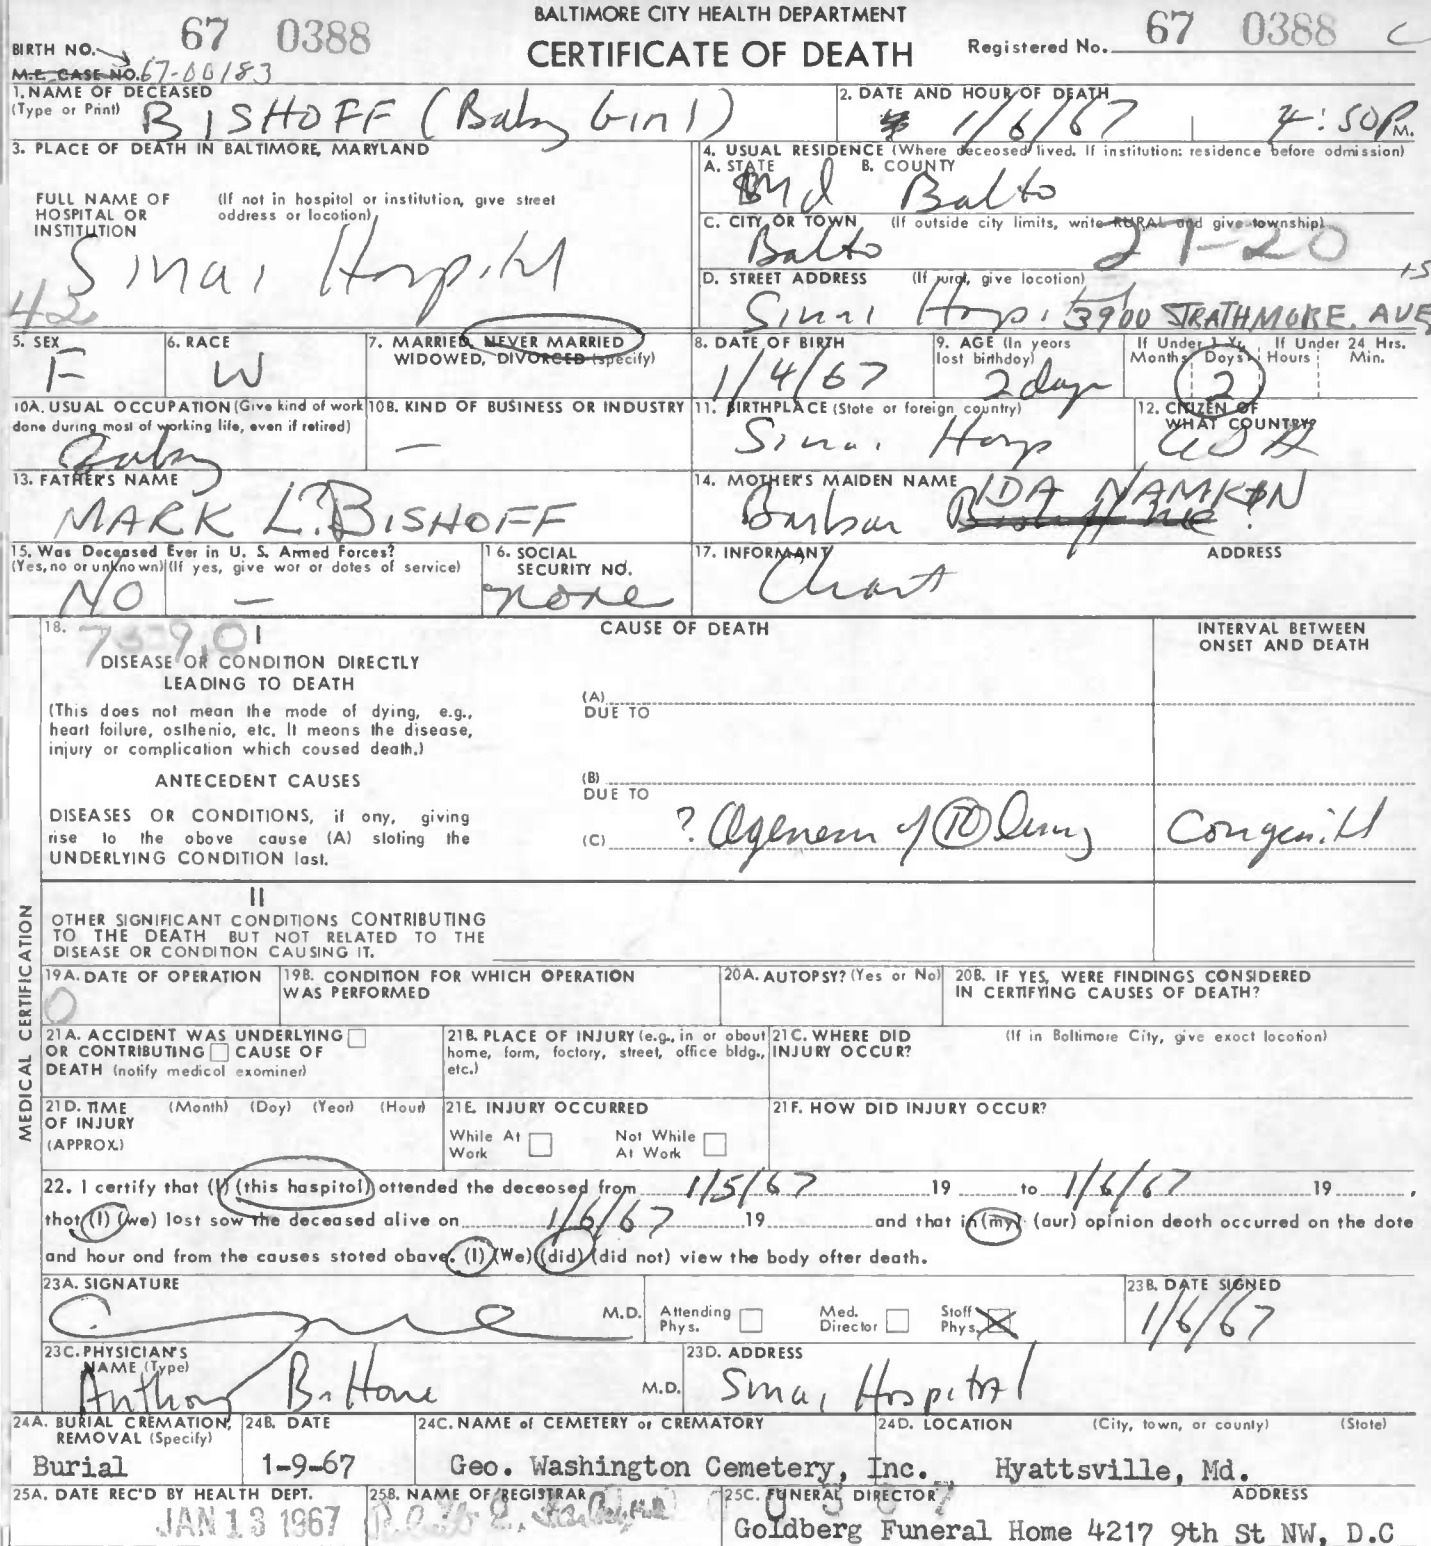 BALTIMORE CITY HEALTH DEPARTMENT
CERTIFICATE OF DEATH
BIRTH NO. 67 0388
Registered No. 67 0388 C
M.E. CASE NO. 67-00183
1. NAME OF DECEASED
(Type or Print) BISHOFF (Baby Girl)
2. DATE AND HOUR OF DEATH
1/6/67 4:50P M.
3. PLACE OF DEATH IN BALTIMORE, MARYLAND
FULL NAME OF HOSPITAL OR INSTITUTION
(If not in hospital or institution, give street address or location)
Sinai Hospital
42
4. USUAL RESIDENCE (Where deceased lived. If institution: residence before admission)
A. STATE B. COUNTY
Md Balto
C. CITY OR TOWN (If outside city limits, write RURAL and give township)
Balto 27-20
D. STREET ADDRESS (If rural, give location)
Sinai Hosp. 3900 STRATHMORE. AVE
5. SEX
F
6. RACE
W
7. MARRIED, NEVER MARRIED
WIDOWED, DIVORCED (specify)
8. DATE OF BIRTH
1/4/67
9. AGE (In years last birthday)
2 days
If Under 1 Yr. If Under 24 Hrs.
Months Days Hours Min.
2
10A. USUAL OCCUPATION (Give kind of work done during most of working life, even if retired)
Baby
10B. KIND OF BUSINESS OR INDUSTRY
—
11. BIRTHPLACE (State or foreign country)
Sinai Hosp
12. CITIZEN OF WHAT COUNTRY?
USA
13. FATHER'S NAME
MARK L. BISHOFF
14. MOTHER'S MAIDEN NAME
IDA NAMKIN
15. Was Deceased Ever in U. S. Armed Forces?
(Yes, no or unknown) (If yes, give war or dates of service)
NO —
16. SOCIAL SECURITY NO.
none
17. INFORMANT ADDRESS
Chart
18. 759.0 I
CAUSE OF DEATH
INTERVAL BETWEEN ONSET AND DEATH
DISEASE OR CONDITION DIRECTLY
LEADING TO DEATH
(This does not mean the mode of dying, e.g.,
heart failure, asthenia, etc. It means the disease,
injury or complication which caused death.)
(A)
DUE TO
ANTECEDENT CAUSES
(B)
DUE TO
DISEASES OR CONDITIONS, if any, giving
rise to the above cause (A) stating the
UNDERLYING CONDITION last.
(C) ? Agenesis of R lung Congenital
II
OTHER SIGNIFICANT CONDITIONS CONTRIBUTING
TO THE DEATH BUT NOT RELATED TO THE
DISEASE OR CONDITION CAUSING IT.
MEDICAL CERTIFICATION
19A. DATE OF OPERATION
0
19B. CONDITION FOR WHICH OPERATION WAS PERFORMED
20A. AUTOPSY? (Yes or No)
20B. IF YES, WERE FINDINGS CONSIDERED IN CERTIFYING CAUSES OF DEATH?
21A. ACCIDENT WAS UNDERLYING
OR CONTRIBUTING CAUSE OF
DEATH (notify medical examiner)
21B. PLACE OF INJURY (e.g., in or about
home, farm, factory, street, office bldg.,
etc.)
21C. WHERE DID INJURY OCCUR?
(If in Baltimore City, give exact location)
21D. TIME OF INJURY (Month) (Day) (Year) (Hour)
(APPROX.)
21E. INJURY OCCURRED
While At Work Not While At Work
21F. HOW DID INJURY OCCUR?
22. I certify that (I) (this hospital) attended the deceased from 1/5/67 19 to 1/6/67 19 .
that (I) (we) last saw the deceased alive on 1/6/67 19 and that in (my) (our) opinion death occurred on the date
and hour and from the causes stated above. (I) (We) (did) (did not) view the body after death.
23A. SIGNATURE
M.D.
Attending Phys. Med. Director Staff Phys.
23B. DATE SIGNED
1/6/67
23C. PHYSICIAN'S NAME (Type)
Anthony M.D.
23D. ADDRESS
Sinai Hospital
24A. BURIAL CREMATION, REMOVAL (Specify)
Burial
24B. DATE
1-9-67
24C. NAME of CEMETERY or CREMATORY
Geo. Washington Cemetery, Inc.
24D. LOCATION (City, town, or county) (State)
Hyattsville, Md.
25A. DATE REC'D BY HEALTH DEPT.
JAN 13 1967
25B. NAME OF REGISTRAR
25C. FUNERAL DIRECTOR ADDRESS
Goldberg Funeral Home 4217 9th St NW, D.C